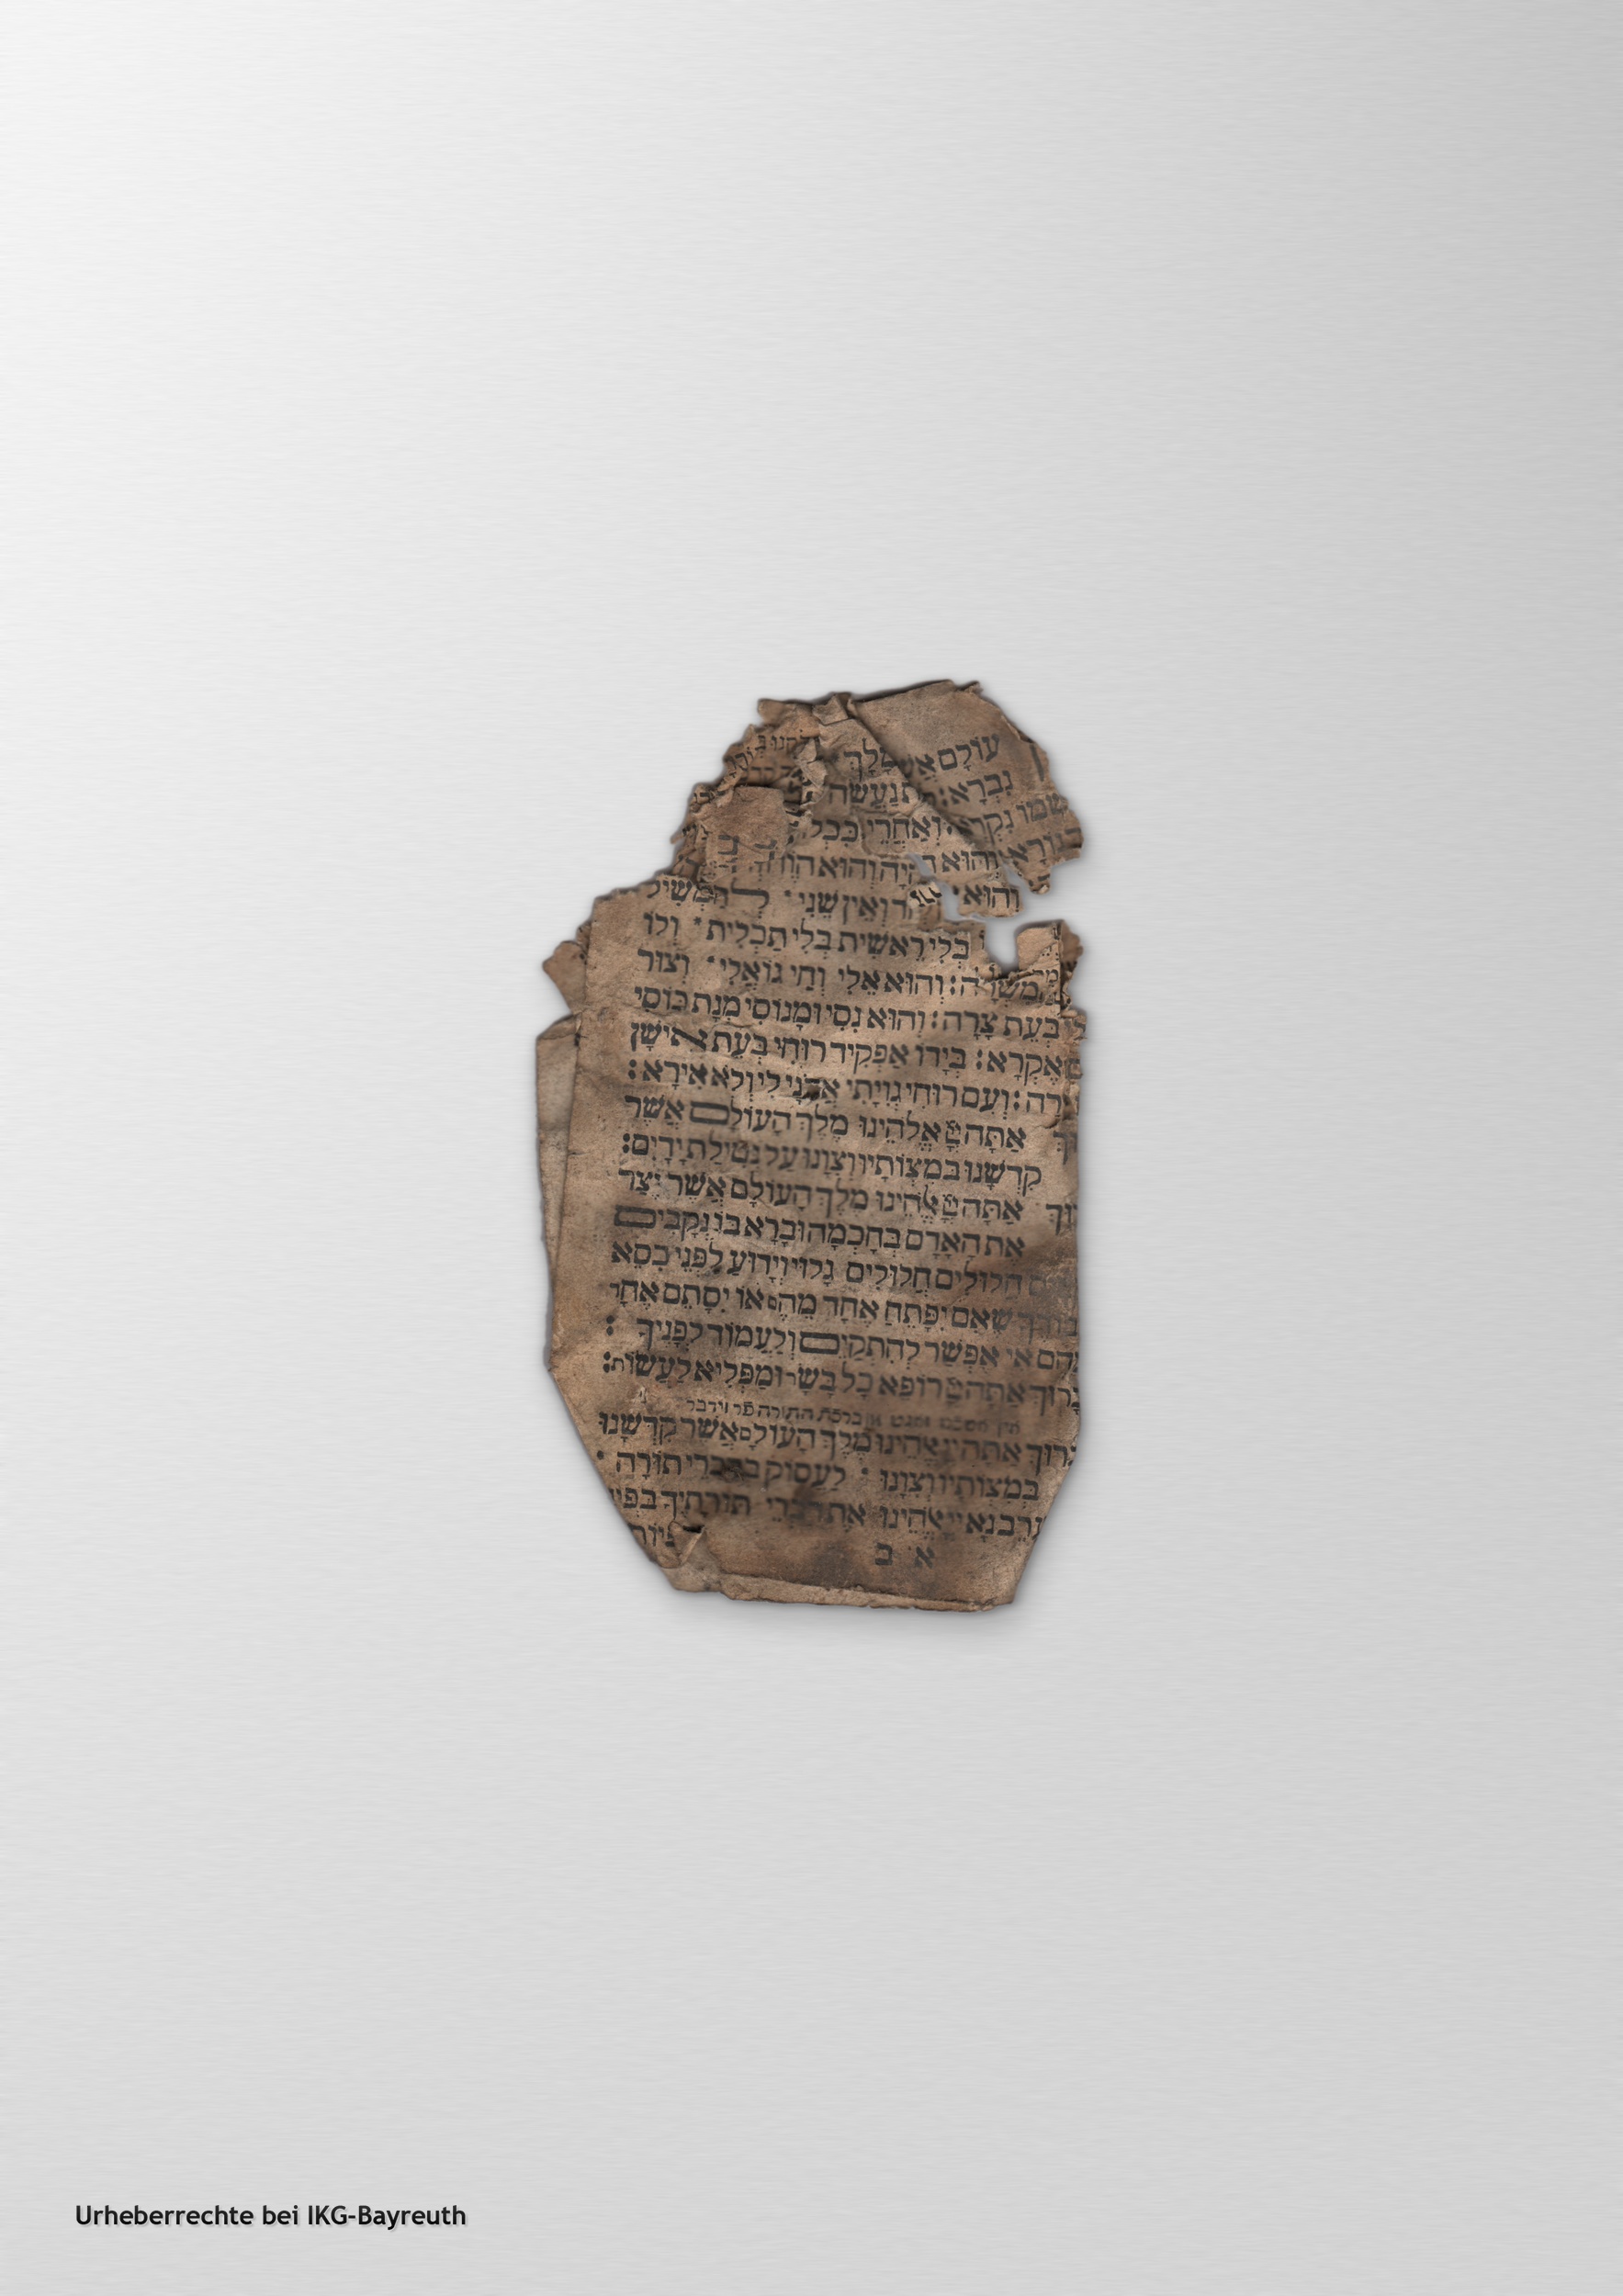 עוֹלָם אֲ מָלַךְ
נִבְרָא: נַעֲשָׂה
שְׁמוֹ נִקְרָא: וְאַחֲרֵי כִּכְל
נוֹרָא: וְהוּא הָיָה וְהוּא הוֹוֶה
וְהוּא וְאֵין שֵׁנִי · לְהַמְשִׁיל
בְּלִי רֵאשִׁית בְּלִי תַכְלִית · וְלוֹ
הַמִּשְׂרָה: וְהוּא אֵלִי וְחַי גּוֹאֲלִי · וְצוּר
בְּעֵת צָרָה: וְהוּא נִסִּי וּמָנוֹסִי מְנָת כּוֹסִי
אֶקְרָא: בְּיָדוֹ אַפְקִיד רוּחִי בְּעֵת אִישָׁן
וְעִם רוּחִי גְוִיָּתִי אֲדֹנָי לִי וְלֹא אִירָא:
אַתָּה יְיָ אֱלֹהֵינוּ מֶלֶךְ הָעוֹלָם אֲשֶׁר
קִדְּשָׁנוּ בְּמִצְוֹתָיו וְצִוָּנוּ עַל נְטִילַת יָדָיִם:
אַתָּה יְיָ אֱלֹהֵינוּ מֶלֶךְ הָעוֹלָם אֲשֶׁר יָצַר
אֶת הָאָדָם בְּחָכְמָה וּבָרָא בוֹ נְקָבִים
חֲלוּלִים חֲלוּלִים גָּלוּי וְיָדוּעַ לִפְנֵי כִסֵּא
שֶׁאִם יִפָּתֵחַ אֶחָד מֵהֶם אוֹ יִסָּתֵם אֶחָד
מֵהֶם אִי אֶפְשַׁר לְהִתְקַיֵּם וְלַעֲמוֹד לְפָנֶיךָ :
בָּרוּךְ אַתָּה יְיָ רוֹפֵא כָל בָּשָׂר וּמַפְלִיא לַעֲשׂוֹת:
ברכת התורה
בָּרוּךְ אַתָּה יְיָ אֱלֹהֵינוּ מֶלֶךְ הָעוֹלָם אֲשֶׁר קִדְּשָׁנוּ
בְּמִצְוֹתָיו וְצִוָּנוּ · לַעֲסוֹק בְּדִבְרֵי תוֹרָה ·
הַעֲרֶב נָא יְיָ אֱלֹהֵינוּ אֶת דִּבְרֵי תוֹרָתֶיךָ בְּפִינוּ
א ב
Urheberrechte bei IKG-Bayreuth